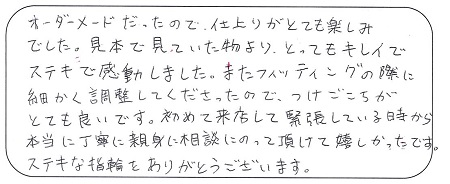 オーダーメードだったので、仕上りがとても楽しみ
でした。見本で見ていた物より、とってもキレイで
ステキで感動しました。またフィッティングの際に
細かく調整してくださったので、つけごこちが
とても良いです。初めて来店して緊張している時から
本当に丁寧に親身に相談にのって頂けて嬉しかったです。
ステキな指輪をありがとうございます。